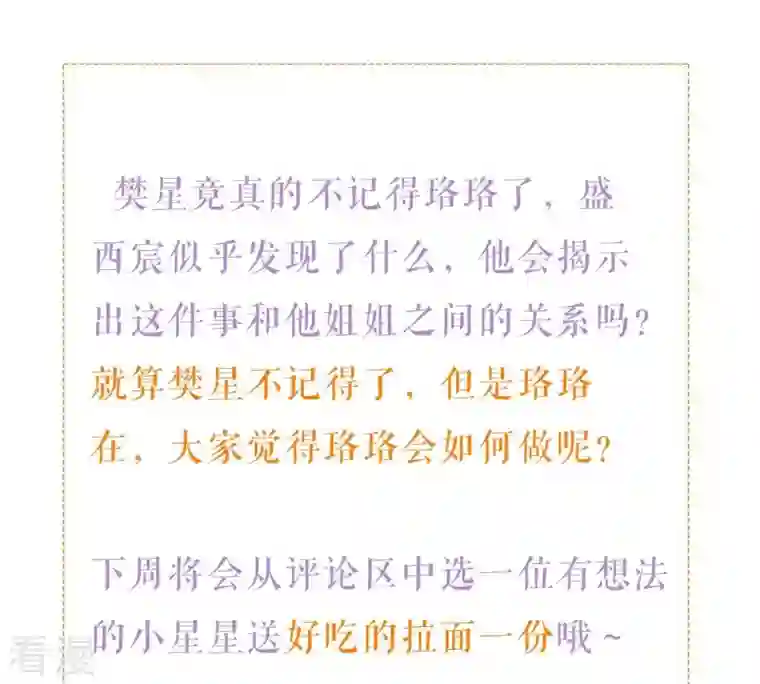 樊星竟真的不记得珞珞了，盛
西宸似乎发现了什么，他会揭示
出这件事和他姐姐之间的关系吗？
就算樊星不记得了，但是珞珞
在，大家觉得珞珞会如何做呢？
下周将会从评论区中选一位有想法
的小星星送好吃的拉面一份哦～
看漫